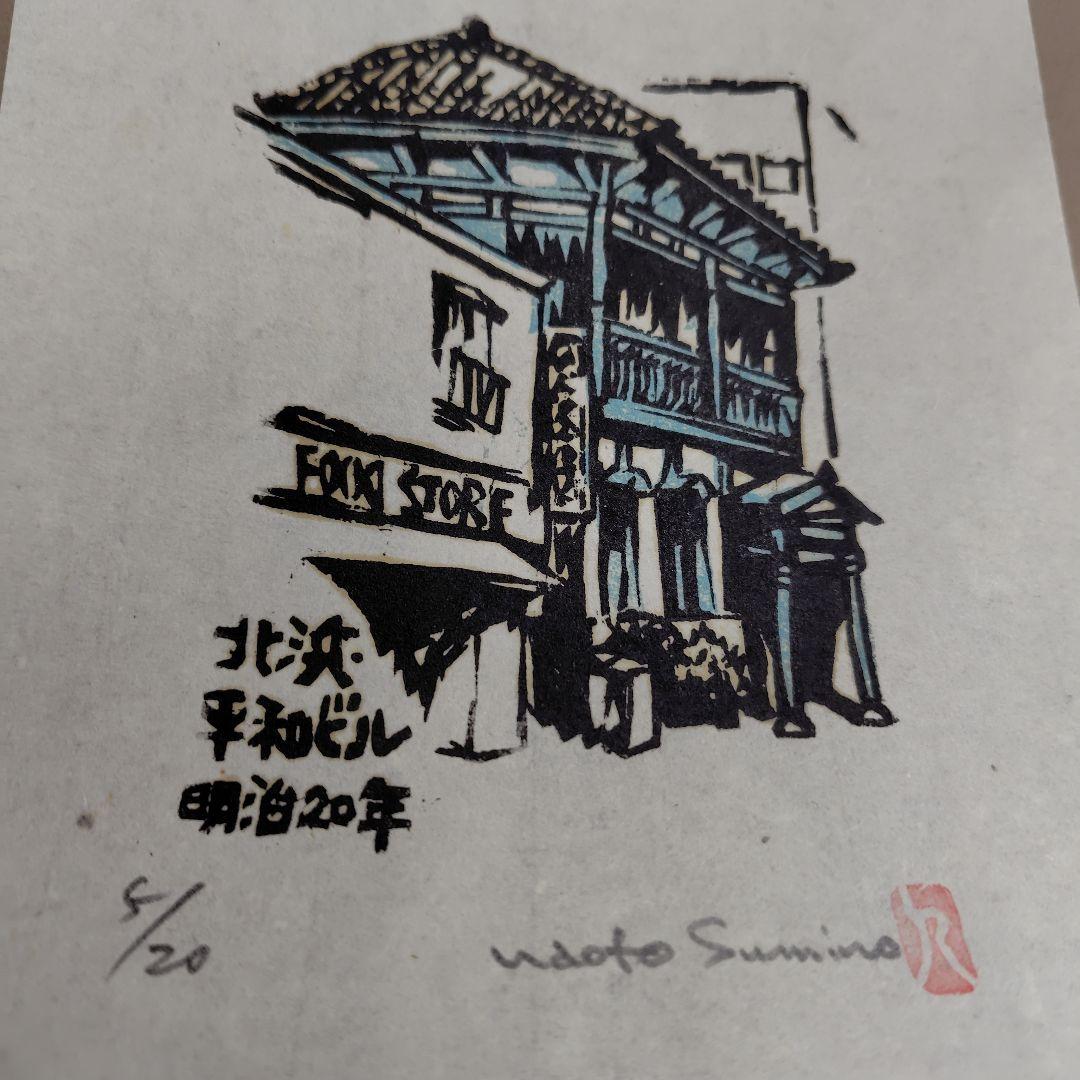 FOOD STORE
北浜
平和ビル
明治20年
5/20
naoto Sumino